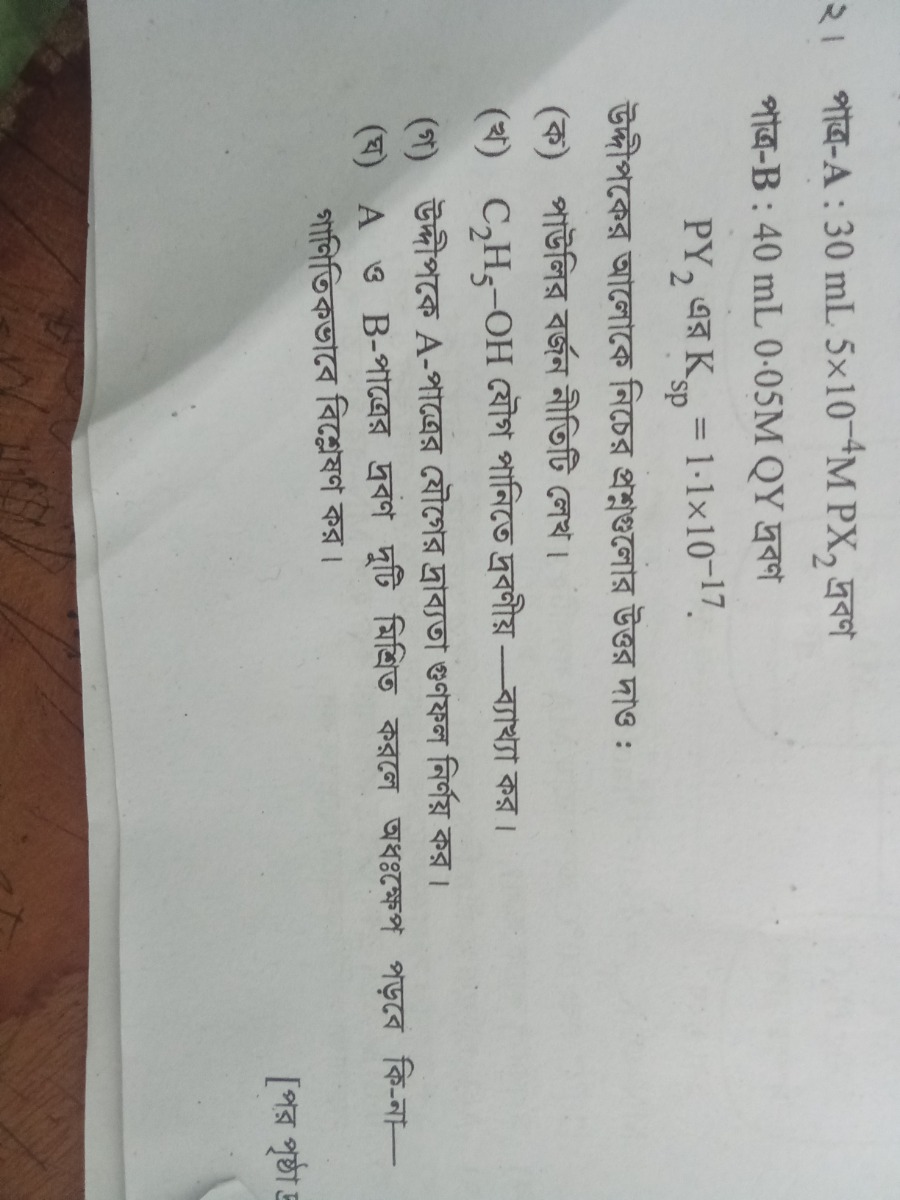 ২। পাত্র-A : 30 mL 5×10⁻⁴M PX₂ দ্রবণ
পাত্র-B : 40 mL 0·05M QY দ্রবণ
PY₂ এর Kₛₚ = 1·1×10⁻¹⁷.
উদ্দীপকের আলোকে নিচের প্রশ্নগুলোর উত্তর দাও :
(ক) পাউলির বর্জন নীতিটি লেখ।
(খ) C₂H₅–OH যৌগ পানিতে দ্রবণীয় —ব্যাখ্যা কর।
(গ) উদ্দীপকে A-পাত্রের যৌগের দ্রাব্যতা গুণফল নির্ণয় কর।
(ঘ) A ও B-পাত্রের দ্রবণ দুটি মিশ্রিত করলে অধঃক্ষেপ পড়বে কি-না—
গাণিতিকভাবে বিশ্লেষণ কর।
[পর পৃষ্ঠা